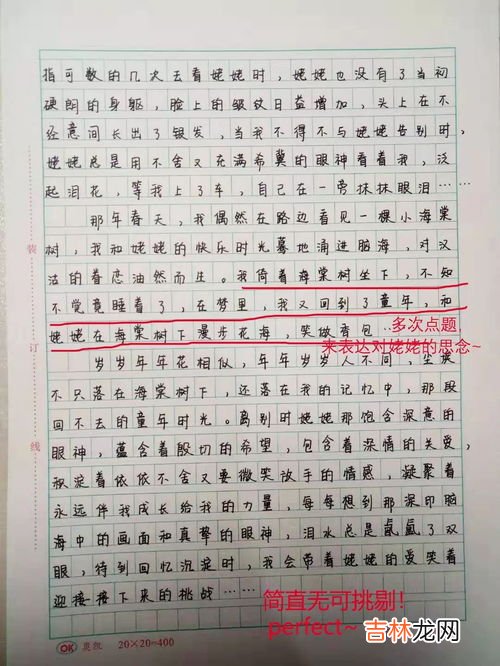 指可数的几天去看姥姥时，姥姥也没有了当初
硬朗的身躯，脸上的皱纹日益增加，头上在不
经意间长出了银发，当我不得不与姥姥告别时，
姥姥总是用不舍又充满希冀的眼神看着我，泛
起泪花，等我上了车，自己在一旁抹抹眼泪……
那年春天，我偶然在路边看见一棵小海棠
树，我和姥姥的快乐时光蓦地涌进脑海，对汉
沽的眷恋油然而生。我倚着海棠树坐下，不知
不觉竟睡着了，在梦里，我又回到了童年，和
姥姥在海棠树下漫步花海，笑做香包……
多次点题
来表达对姥姥的思念~
岁岁年年花相似，年年岁岁人不同，坐
不只落在海棠树下，还落在我的记忆中，那段
回不去的童年时光。离别时姥姥那饱含深意的
眼神，蕴含着殷切的希望，包含着深情的关爱，
积淀着依依不舍又要微笑放手的情感，凝聚着
永远伴我成长给我的力量，每每想到那深印脑
海中的画面和真挚的眼神，泪水总是氤氲了双
眼，待到回忆沉淀时，我会带着姥姥的爱笑着
迎接接下来的挑战……
简直无可挑剔！
perfect~
装
订
线
OK 奥凯 20×20=400
吉林龙网